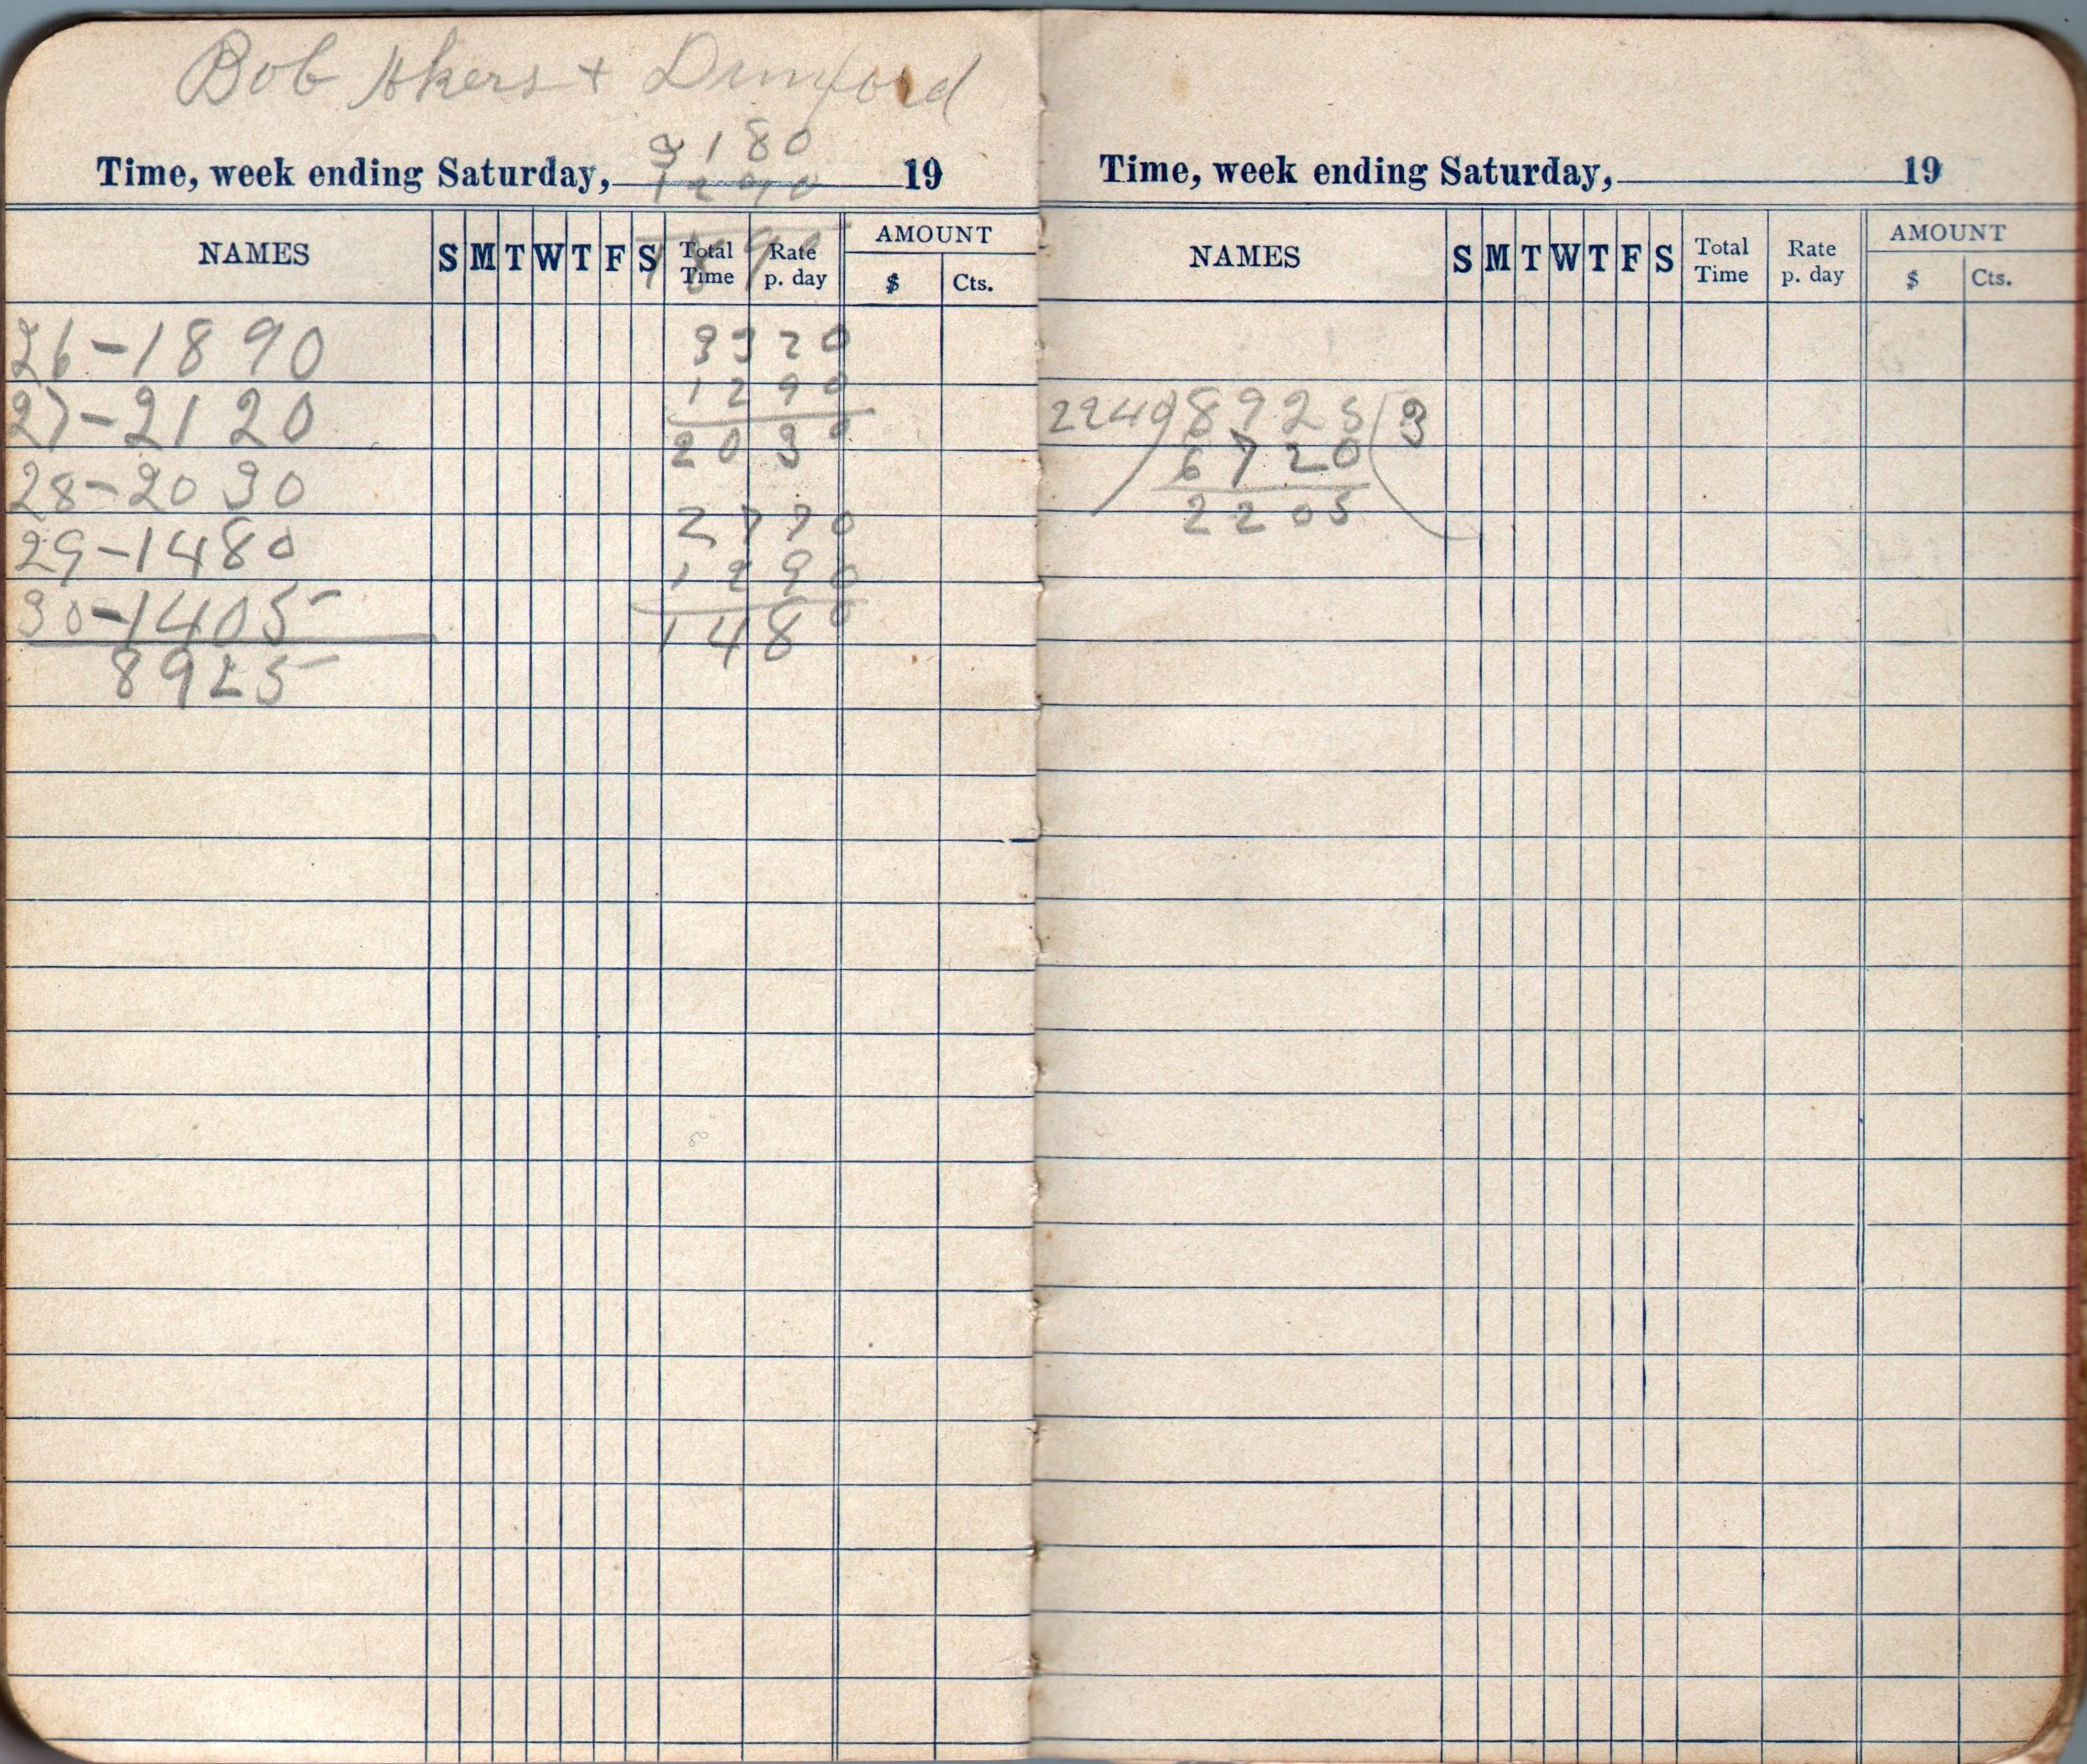 Bob Akers + Dunford
3180
Time, week ending Saturday, 1290 19
1890
NAMES S M T W T F S Total Time Rate p. day AMOUNT $ Cts.
26-1890 3320
1290
27-2120 2030
28-2030
2770
29-1480 1290
30-1405 1480
8925
Time, week ending Saturday, 19
NAMES S M T W T F S Total Time Rate p. day AMOUNT $ Cts.
2240)8925(3
6720
2205